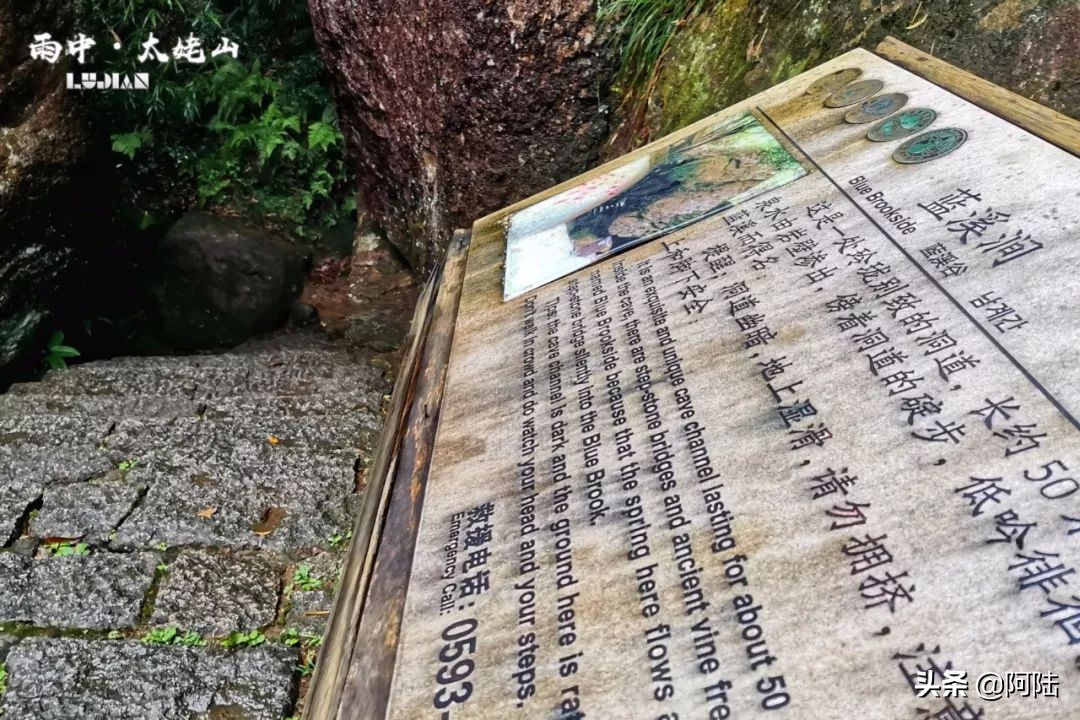 雨中·太姥山
LUDIAN
蓝溪涧
Blue Brookside 藍渓谷 남계간
这是一处玲珑别致的洞道，长约50
泉水由岩壁渗出，傍着洞道的碇步，低吟徘徊
蓝溪而得名。
提醒：洞道幽暗，地上湿滑，请勿拥挤，注意
上和脚下安全；
It is an exquisite and unique cave channel lasting for about 50
Inside the cave, there are step-stone bridges and ancient vine
named Blue Brookside because that the spring here flows
step-stone bridge silently into the Blue Brook.
Tips: the cave channel is dark and the ground here is
Don't walk in crowd and do watch your head and your steps.
救援电话：0593-
Emergency Call:
头条 @阿陆